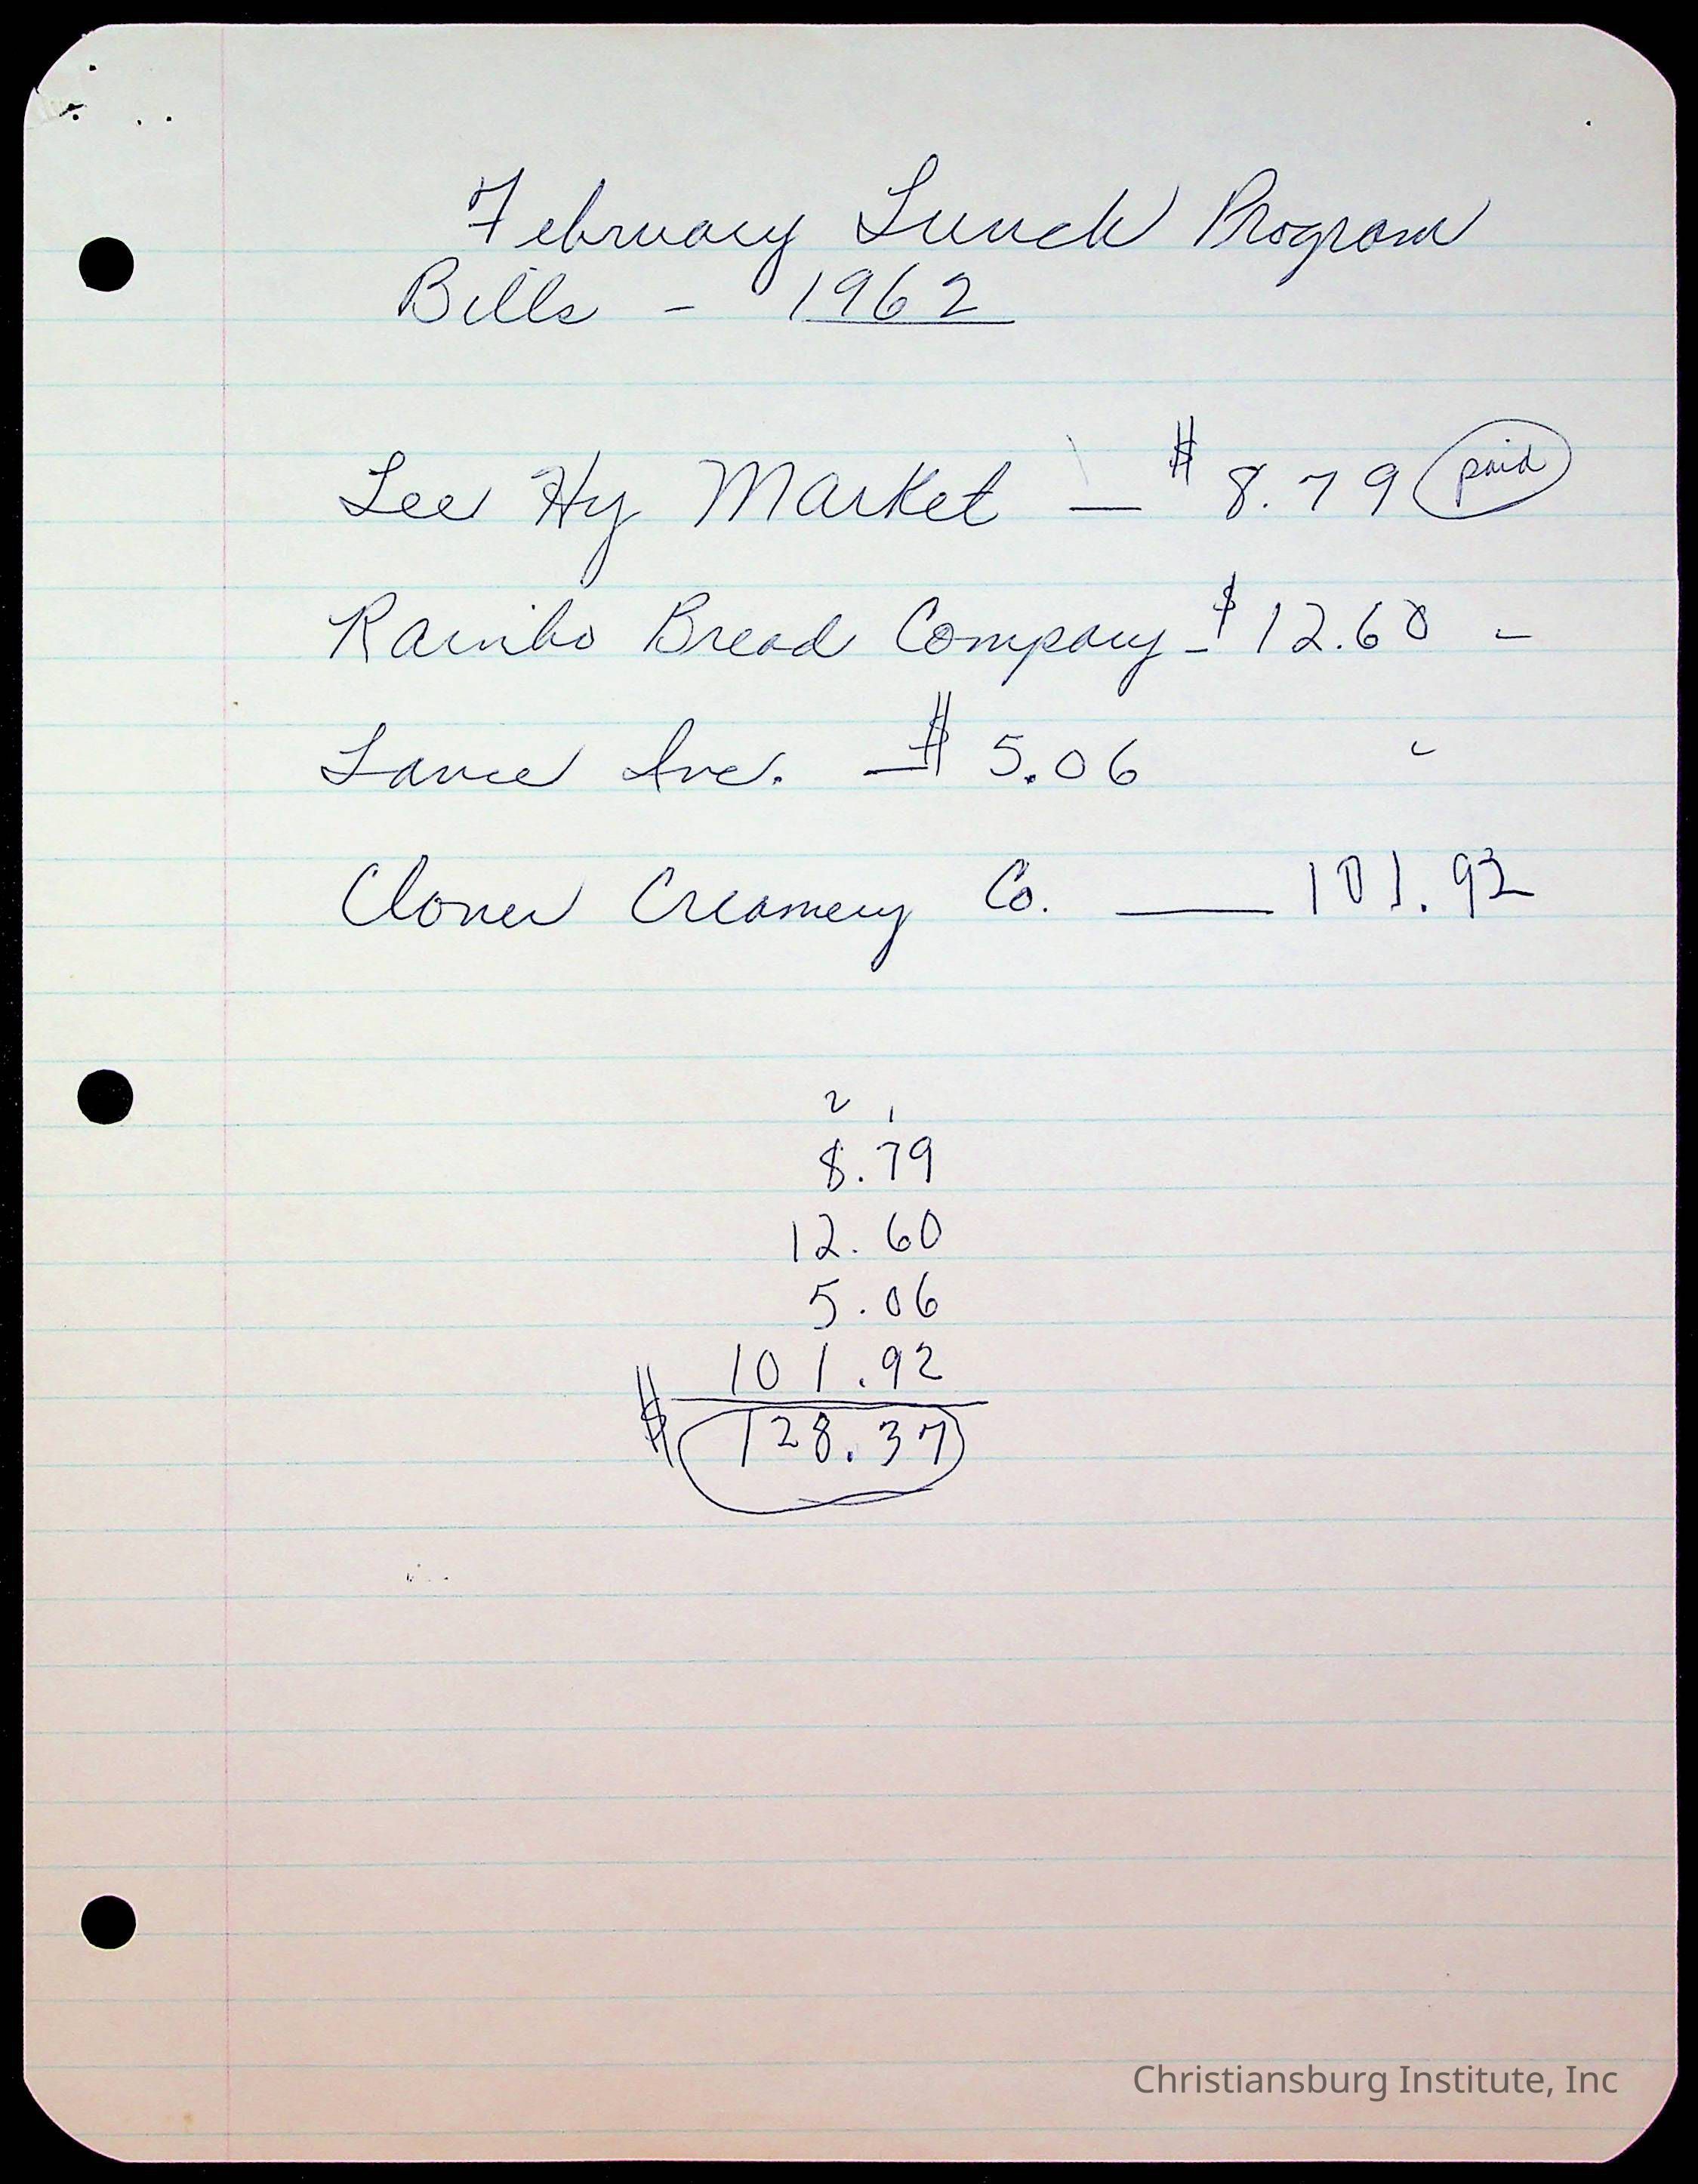 February Lunch Program
Bills - 1962
Lee Hy Market — $ 8.79 paid
Rainbo Bread Company - $ 12.60 -
Lance Inc. — $ 5.06
Clover Creamery Co. — 101.92
2 1
8.79
12.60
5.06
101.92
$ 128.37
Christiansburg Institute, Inc